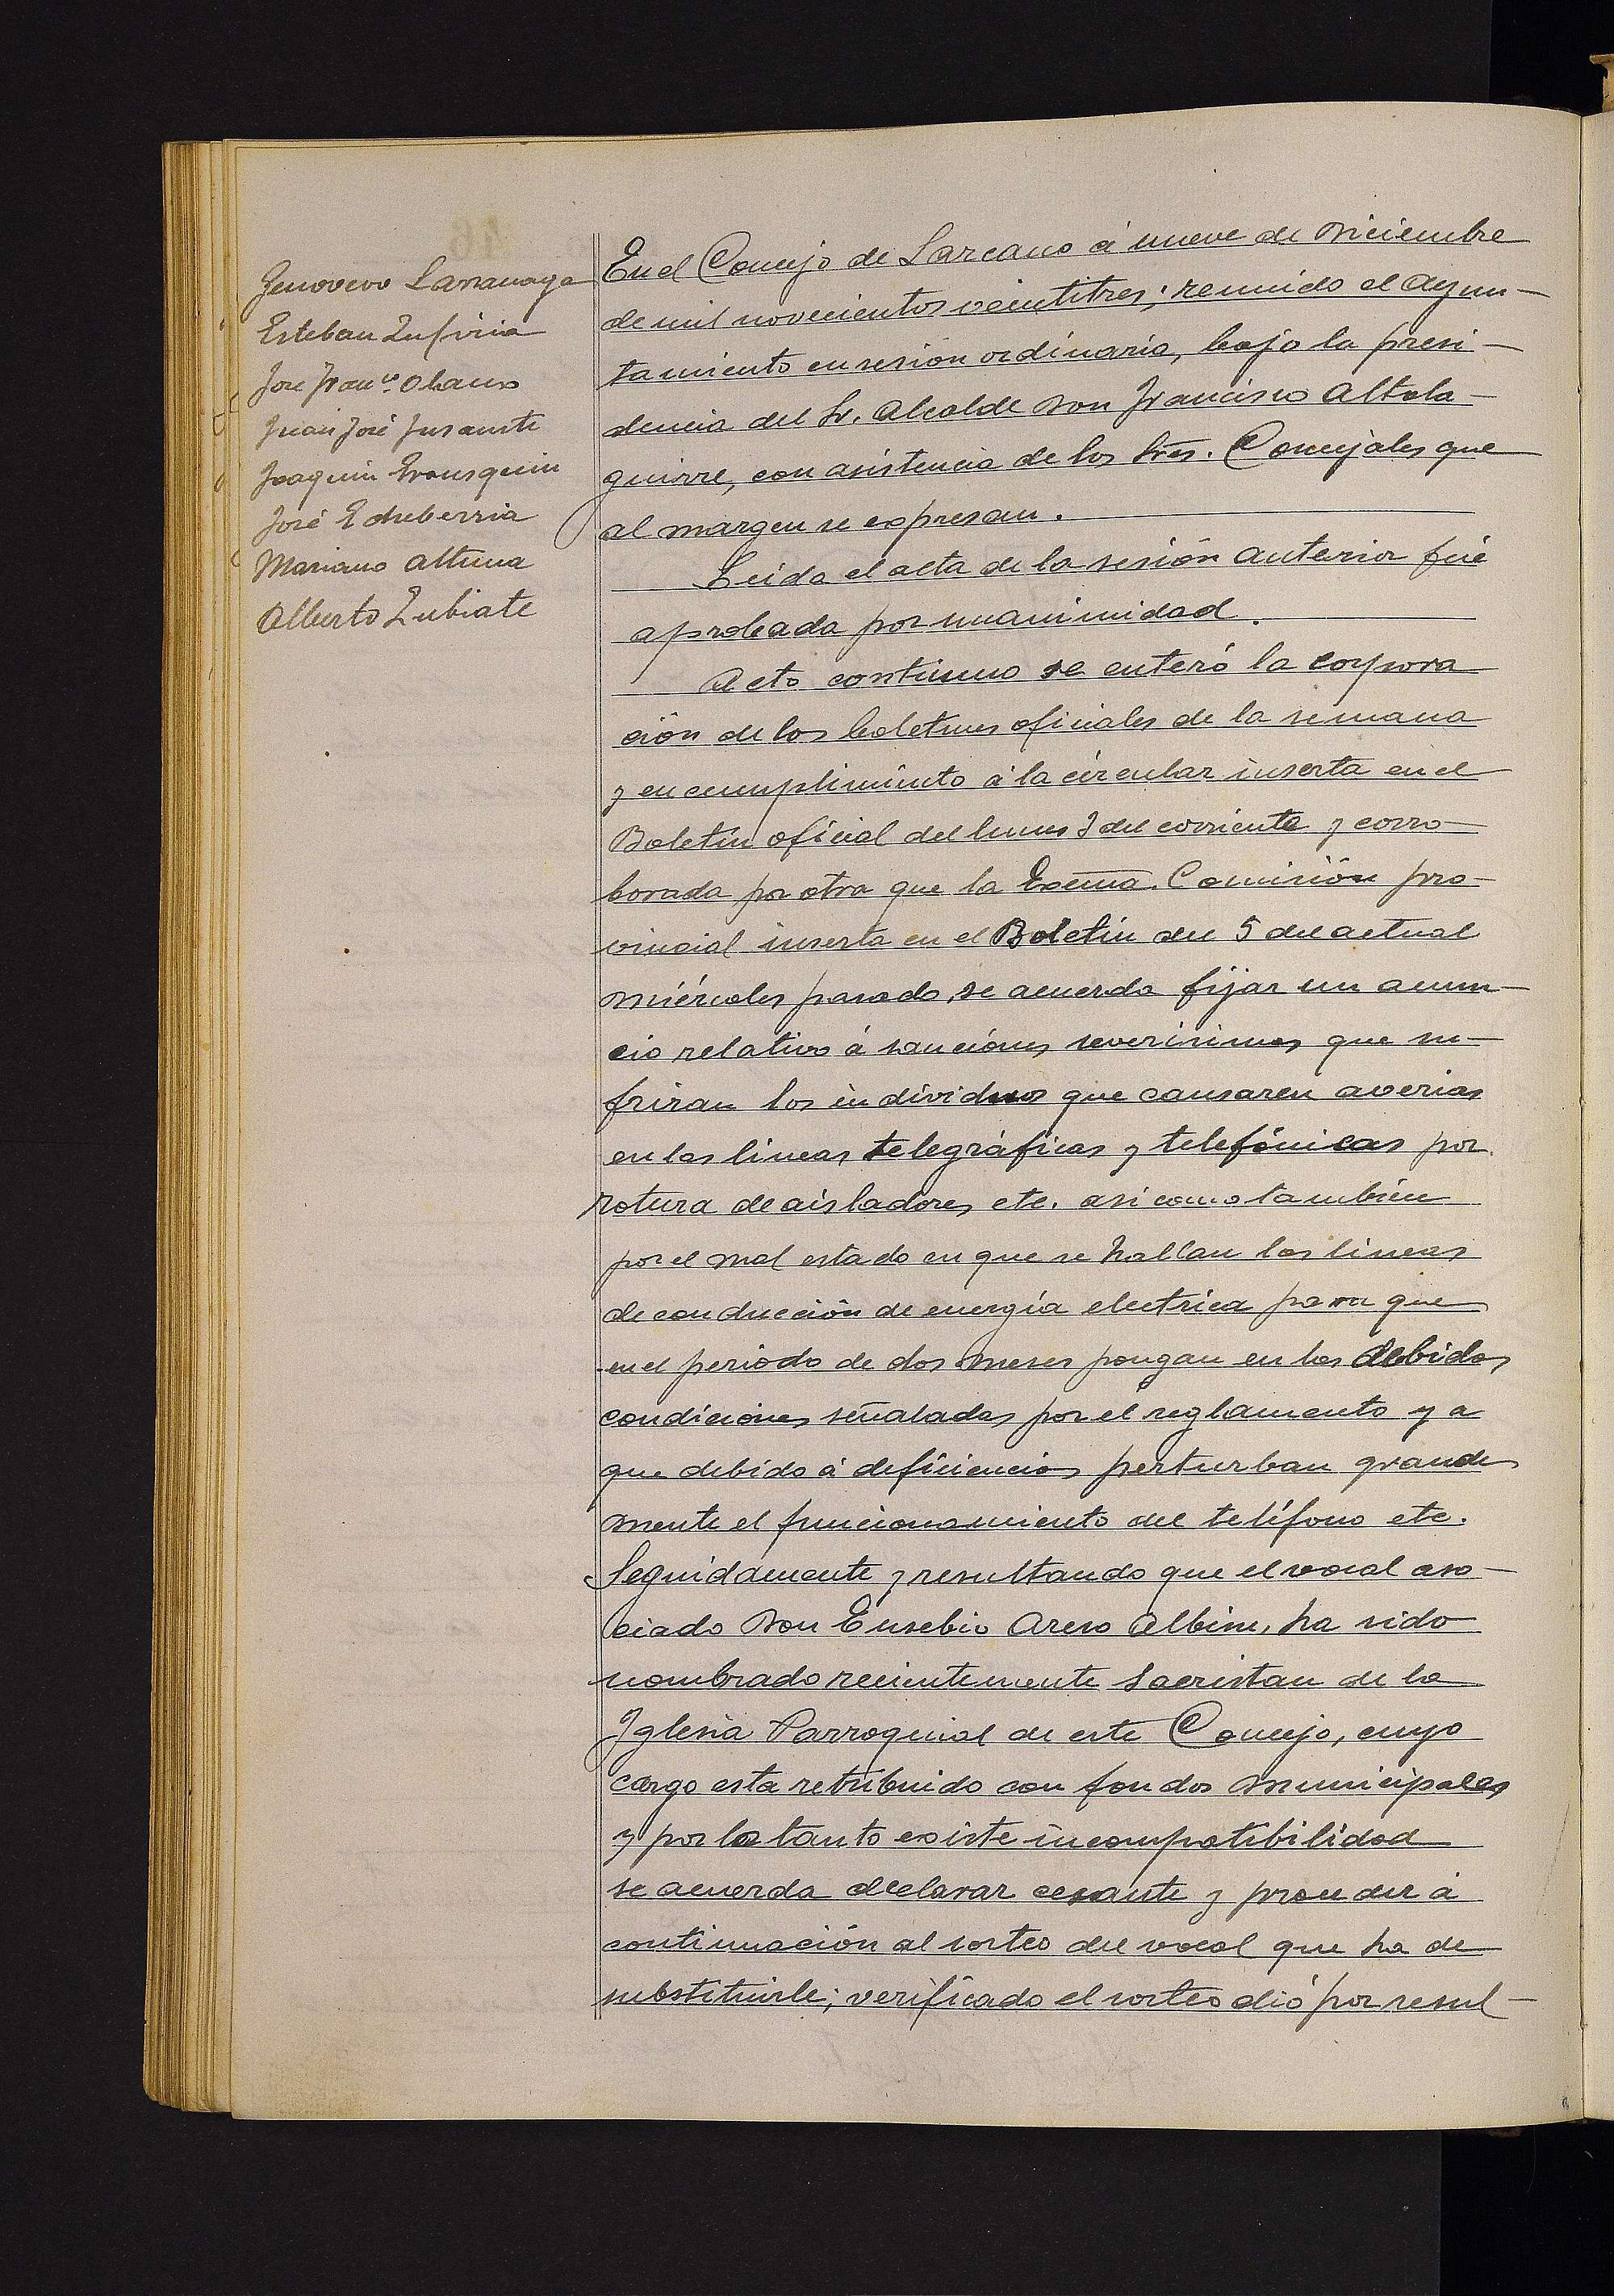 Genovevo Larrañaga
Esteban Zufiria
José Fran.co Olano
Juan José Insausti
Joaquin Irausquin
José Echeberria
Mariano Altuna
Alberto Zubiate
En el Concejo de Lazcano á nueve de Diciembre
de mil novecientos veintitres; reunido el Ayun-
tamiento en sesión ordinaria, bajo la presi-
dencia del Sr. Alcalde Don Francisco Altola-
guirre, con asistencia de los Sres. Concejales que
al margen se expresan.
Leida el acta de la sesión anterior fué
aprobada por unanimidad.
Acto continuo se enteró la corpora
ción de los boletines oficiales de la semana
y en cumplimiento á la circular inserta en el
Boletin oficial del lunes 3 del corriente y corro-
borada por otra que la Excma. Comisión pro-
vincial inserta en el Boletin del 5 del actual
miércoles pasado, se acuerda fijar un anun-
cio relativo á sanciones severisimas que su-
friran los individuos que causaren averias
en las lineas telegráficas y telefónicas por
rotura de aisladores etc. asi como tambien
por el mal estado en que se hallan las lineas
de conducción de energía electrica para que
en el periodo de dos meses pongan en las debidas
condiciones señaladas por el reglamento y a
que debido á deficiencias perturban grande
mente el funcionamiento del teléfono etc.
Seguidamente y resultando que el vocal aso-
ciado Don Eusebio Areso Albisu, ha sido
nombrado recientemente Sacristan de la
Iglesia Parroquial de este Concejo, cuyo
cargo esta retribuido con fondos municipales
y por lo tanto existe incompatibilidad
se acuerda declarar cesante y proceder á
continuación al sorteo del vocal que ha de
substituirle; verificado el sorteo dió por resul-